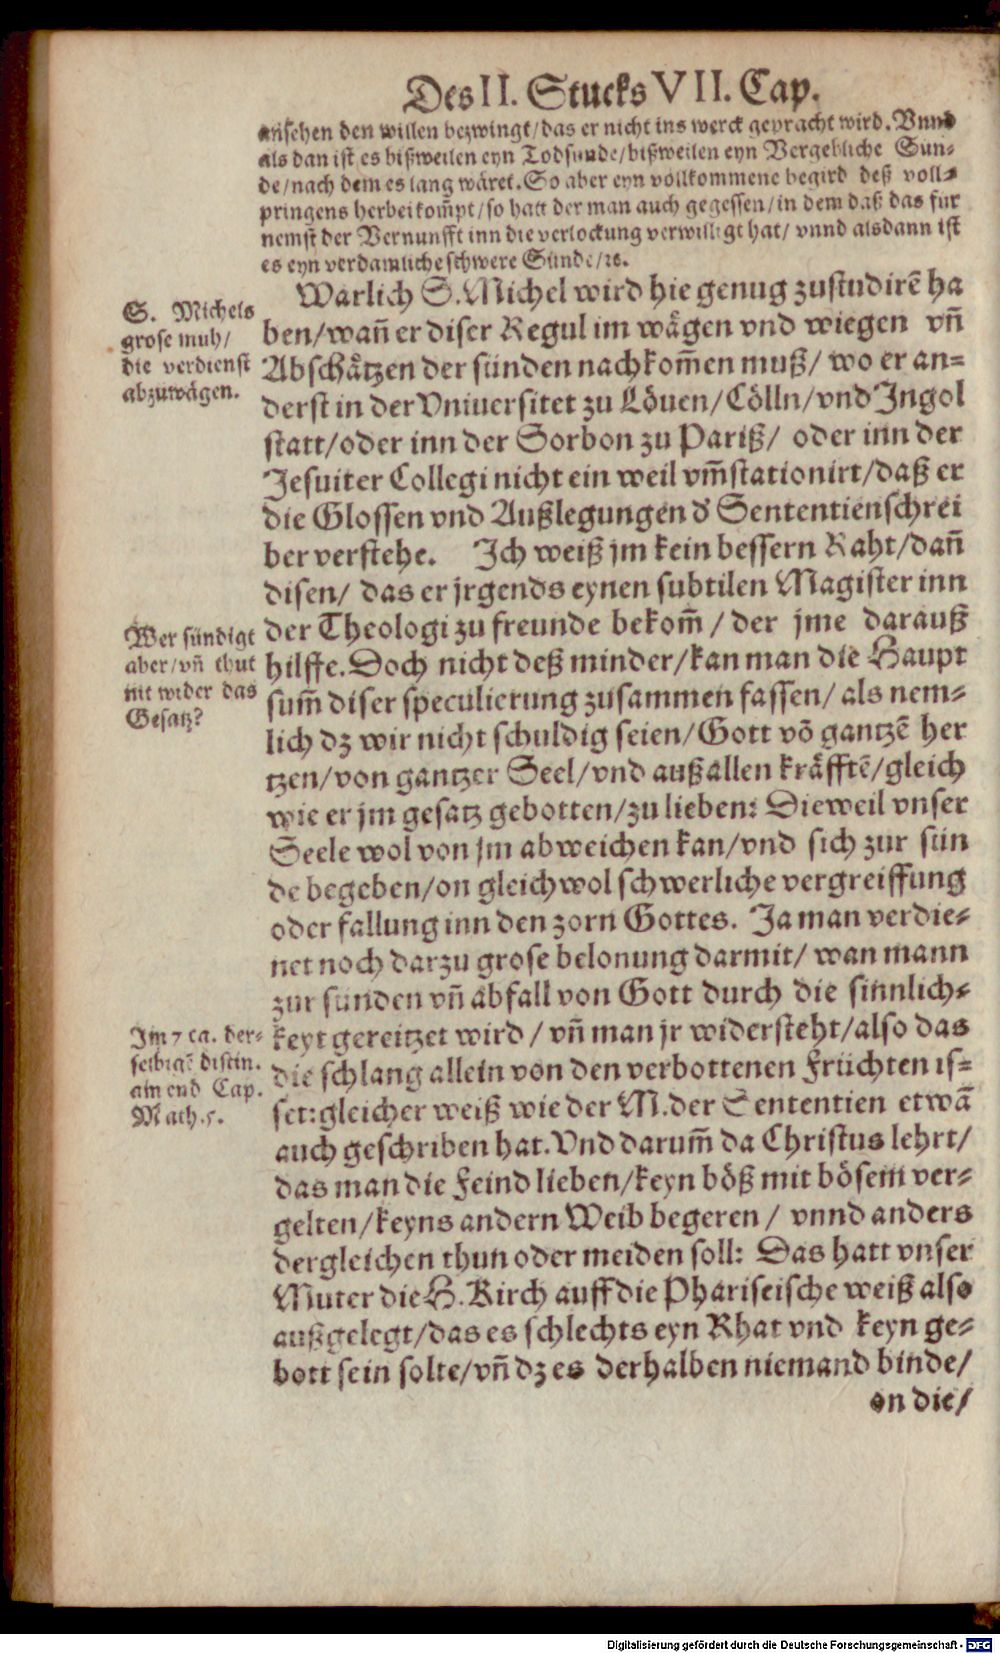 Des II. Stucks VII. Cap.
ansehen den willen bezwingt/das er nicht ins werck gepracht wird. Vnnd
als dan ist es bißweilen eyn Todsunde/bißweilen eyn Vergebliche Sün-
de/nach dem es lang wäret. So aber eyn vollkommene begird deß voll-
pringens herbei kom̃pt/so hatt der man auch gegessen/in dem daß das für
nemst der Vernunfft inn die verlockung verwilligt hat/ vnnd alsdann ist
es eyn verdamliche schwere Sünde/ꝛc.
Warlich S. Michel wird hie genug zustudirẽ ha
ben/wañ er diser Regul im wågen vnd wiegen vñ
Abschåtzen der sünden nachkom̃en muß/ wo er an-
derst in der Vniuersitet zu Löuen/Cölln/vnd Ingol
statt/oder inn der Sorbon zu Pariß/ oder inn der
Jesuiter Collegi nicht ein weil vm̃stationirt/daß er
die Glossen vnd Außlegungen d' Sententienschrei
ber verstehe. Ich weiß jm kein bessern Raht/dañ
disen/ das er jrgends eynen subtilen Magister inn
der Theologi zu freunde bekom̃/ der jme darauß
hilffe. Doch nicht deß minder/kan man die Haupt
sum̃ diser speculierung zusammen fassen/ als nem-
lich dz wir nicht schuldig seien/Gott võ gantzẽ her
tzen/von gantzer Seel/vnd auß allen kråfftẽ/gleich
wie er jm gesatz gebotten/zu lieben: Dieweil vnser
Seele wol von jm abweichen kan/vnd sich zur sün
de begeben/on gleichwol schwerliche vergreiffung
oder fallung inn den zorn Gottes. Ja man verdie-
net noch darzu grose belonung darmit/ wan mann
zur sünden vñ abfall von Gott durch die sinnlich-
keyt gereitzet wird/ vñ man jr widersteht/also das
die schlang allein von den verbottenen Früchten is-
set: gleicher weiß wie der M. der Sententien etwã
auch geschriben hat. Vnd darum̃ da Christus lehrt/
das man die Feind lieben/keyn böß mit bösem ver-
gelten/keyns andern Weib begeren/ vnnd anders
dergleichen thun oder meiden soll: Das hatt vnser
Muter die H. Kirch auff die Phariseische weiß also
außgelegt/das es schlechts eyn Rhat vnd keyn ge-
bott sein solte/vñ dz es derhalben niemand binde/
on die/
S. Michels
grose muh/
die verdienst
abzuwågen.
Wer sündigt
aber/vñ thut
nit wider das
Gesatz?
Im 7 ca. der-
selbigẽ distin.
am end Cap.
Math. 5.
Digitalisierung gefördert durch die Deutsche Forschungsgemeinschaft - DFG